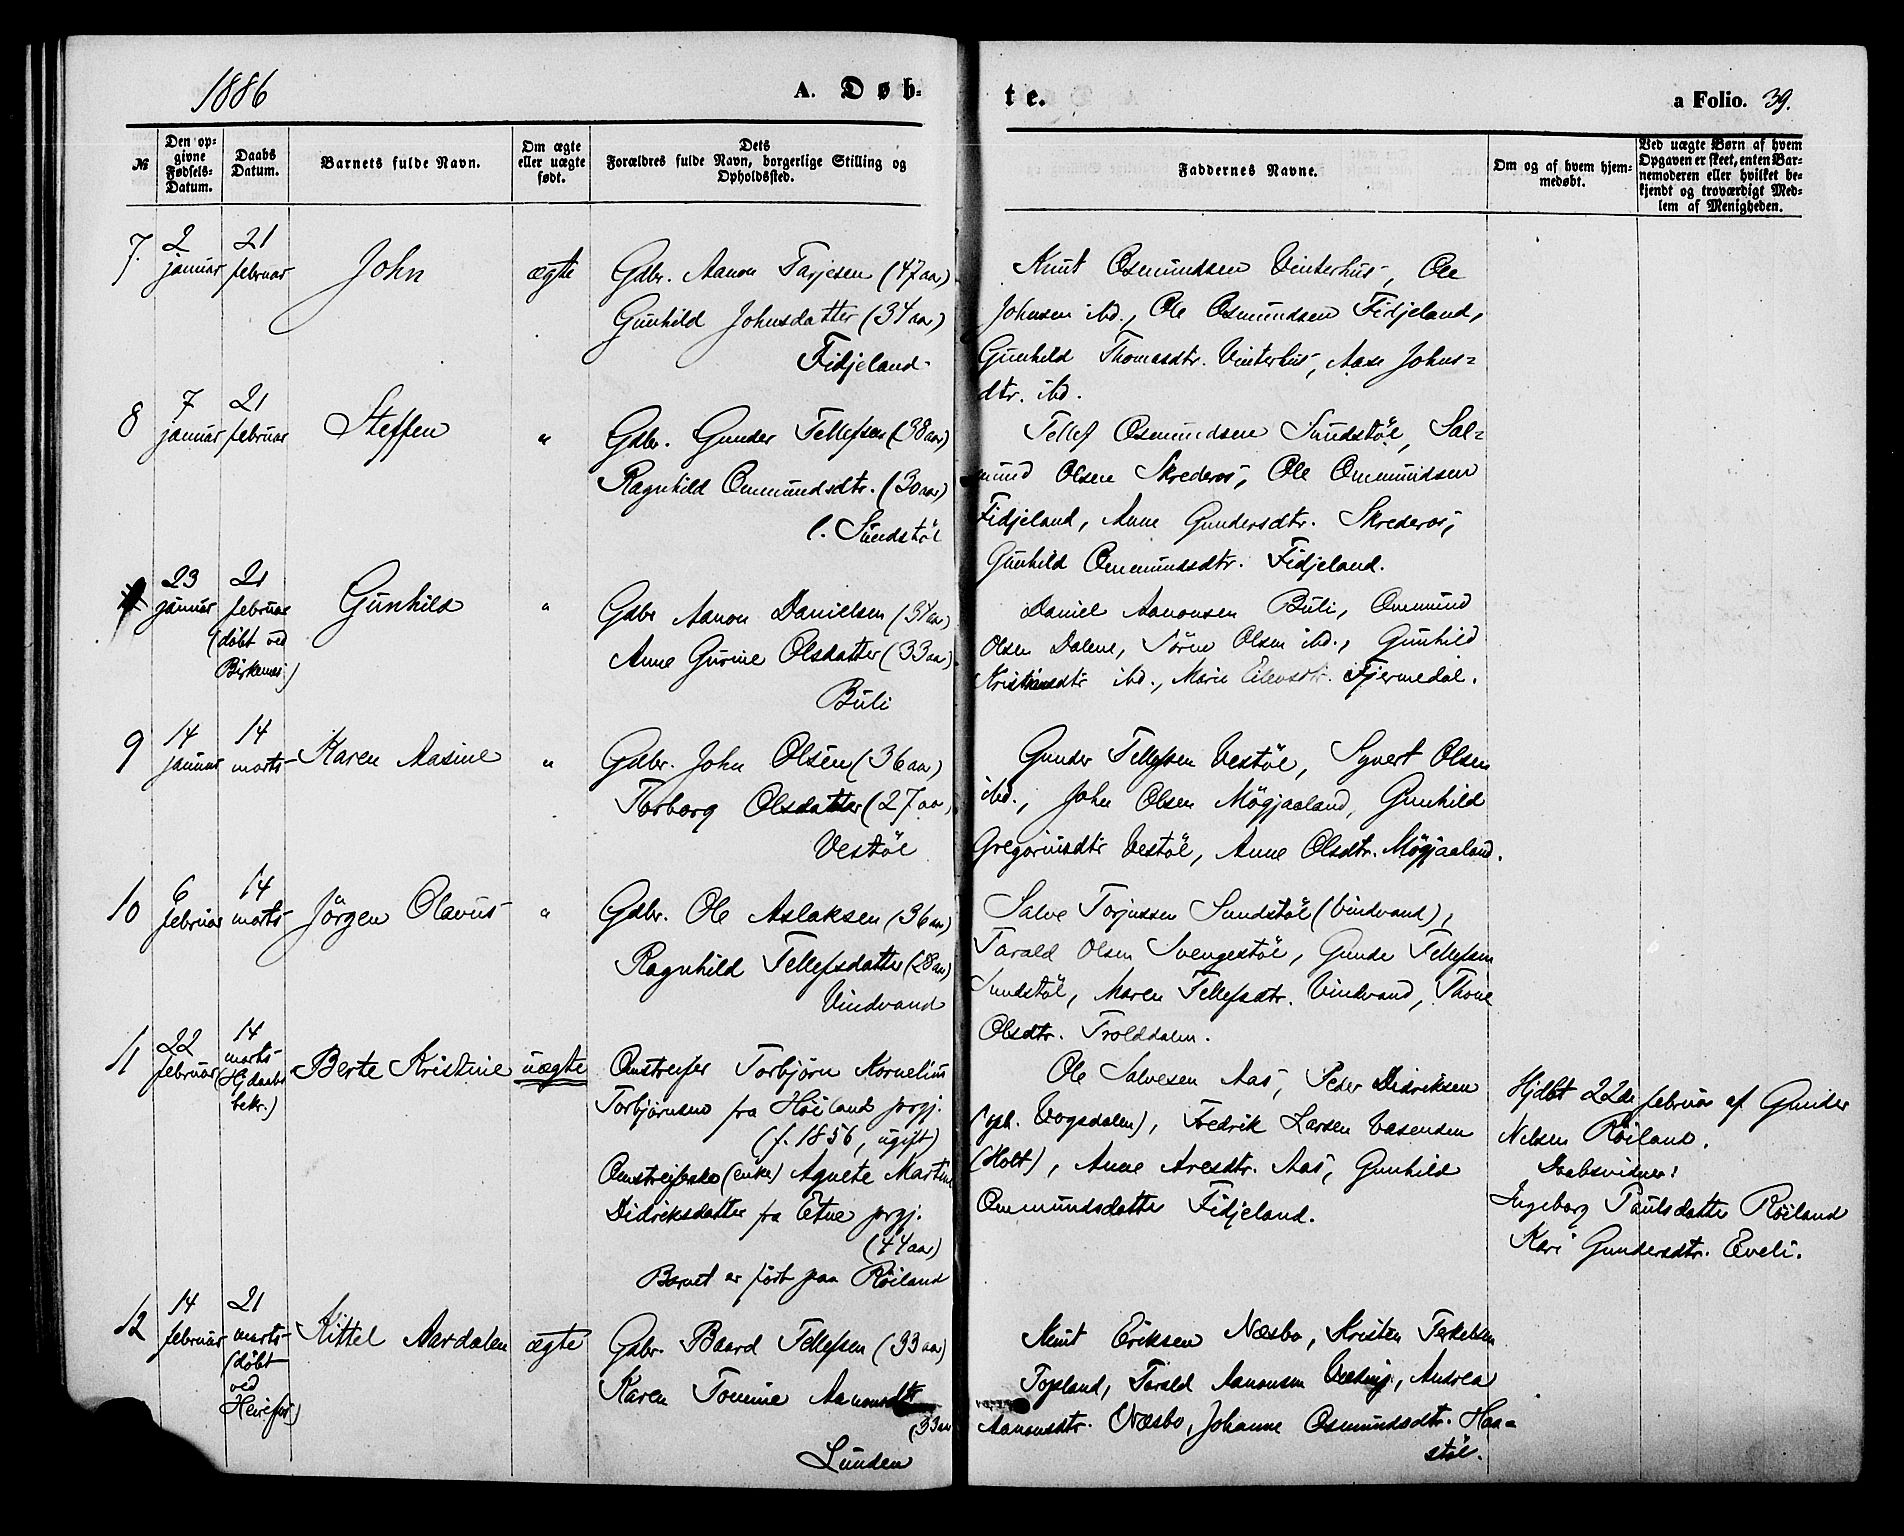 1886
A. Døb-
te.
a Folio. 39.
№
Den op-
givne
Fødsels-
Datum.
Daabs
Datum.
Barnets fulde Navn.
Om ægte
eller uægte
født.
Dets
Forældres fulde Navn, borgerlige Stilling og
Opholdssted.
Faddernes Navne.
Om og af hvem hjem-
medøbt.
Ved uægte Børn af hvem
Opgaven er skeet, enten Bar-
nemoderen eller hvilket be-
kjendt og troværdigt Med-
lem af Menigheden.
7.
2
januar
21
februar
John
ægte
Gdbr. Aanon Tarjesen (47 aar)
Gunhild Johnsdatter (34 aar)
Fidjeland.
Knut Osmundsen Vinterhus, Ole
Johnsen ibd., Ole Osmundsen Fidjeland,
Gunhild Thomasdtr. Vinterhus, Aase Johns=
dtr. ibd.
8
7
januar
21
februar
Steffen
"
Gdbr. Gunder Tellefsen (38 aar)
Ragnhild Ommundsdtr. (30 aar)
l. Sundstöl
Tellef Osmundsen Sundstöl, Sal=
mund Olsen Skrederos, Ole Ommundsen
Fidjeland, Anne Gundersdtr. Skrederos,
Gunhild Ommundsdtr. Fidjeland.
23
januar
21
februar
(döbt ved
Birkenes)
Gunhild
"
Gdbr Aanon Danielsen (34 aar)
Anne Gurine Olsdatter (33 aar)
Buli
Daniel Aanonsen Buli, Ommund
Olsen Dalene, Sören Olsen ibd., Gunhild
Kristiansdtr ibd., Marie Eilevsdtr. Fjermedal.
9
14
januar
14
marts
Karen Aasine
"
Gdbr. John Olsen (36 aar)
Torborg Olsdatter (27 aar)
Vestöl
Gunder Tellefsen Vestöl, Syvert Olsen
ibd., John Olsen Mögjaaland, Gunhild
Gregoriusdtr Vestöl, Anne Olsdtr. Mögjaaland.
10
6
februar
14
marts
Jörgen Olavus
"
Gdbr. Ole Aslaksen (36 aar)
Ragnhild Tellefsdatter (28 aar)
Vindvand
Salve Torjussen Sundstöl (Vindvand),
Tarald Olsen Svengestöl, Gunder Tellefsen
Sundstöl, Maren Tellefsdtr. Vindvand, Thone
Olsdtr. Trolddalen.
11
22
februar
14
marts
(Hjdaabs
bekr.)
Berte Kristine
uægte
Omstreifer Torbjörn Kornelius
Torbjörnsen fra Höiland prgj.
(f. 1856, ugift)
Omstreiferske (enke) Agnete Martine
Didriksdatter fra Etne prgj.
(44 aar)
Barnet er födt paa Röiland
Ole Salvesen Aas, Peder Didriksen
Vogsdalen), Fredrik Larsen Vasenden
(Holt), Anne Aresdtr. Aas, Gunhild
Ommundsdatter Fidjeland.
Hjdbt 22de februar af Gunder
Nelsen Röiland.
Daabsvidner:
Ingeborg Paulsdatter Röiland
Kari Gundersdtr. Eveli.
12
14
februar
21
marts
(döbt
ved
Herefos)
Kittel Aardalen
ægte
Gdbr. Baard Tellefsen (33 aar)
Karen Tomine Aanonsdtr
(33 aar
Lunden
Knut Eriksen Næsbo, Kristen Terkelsen
Topland, Tarald Aanonsen Andrea
Aanonsdtr. Næsbo, Johanne Osmundsdtr. Haa=
stöl.